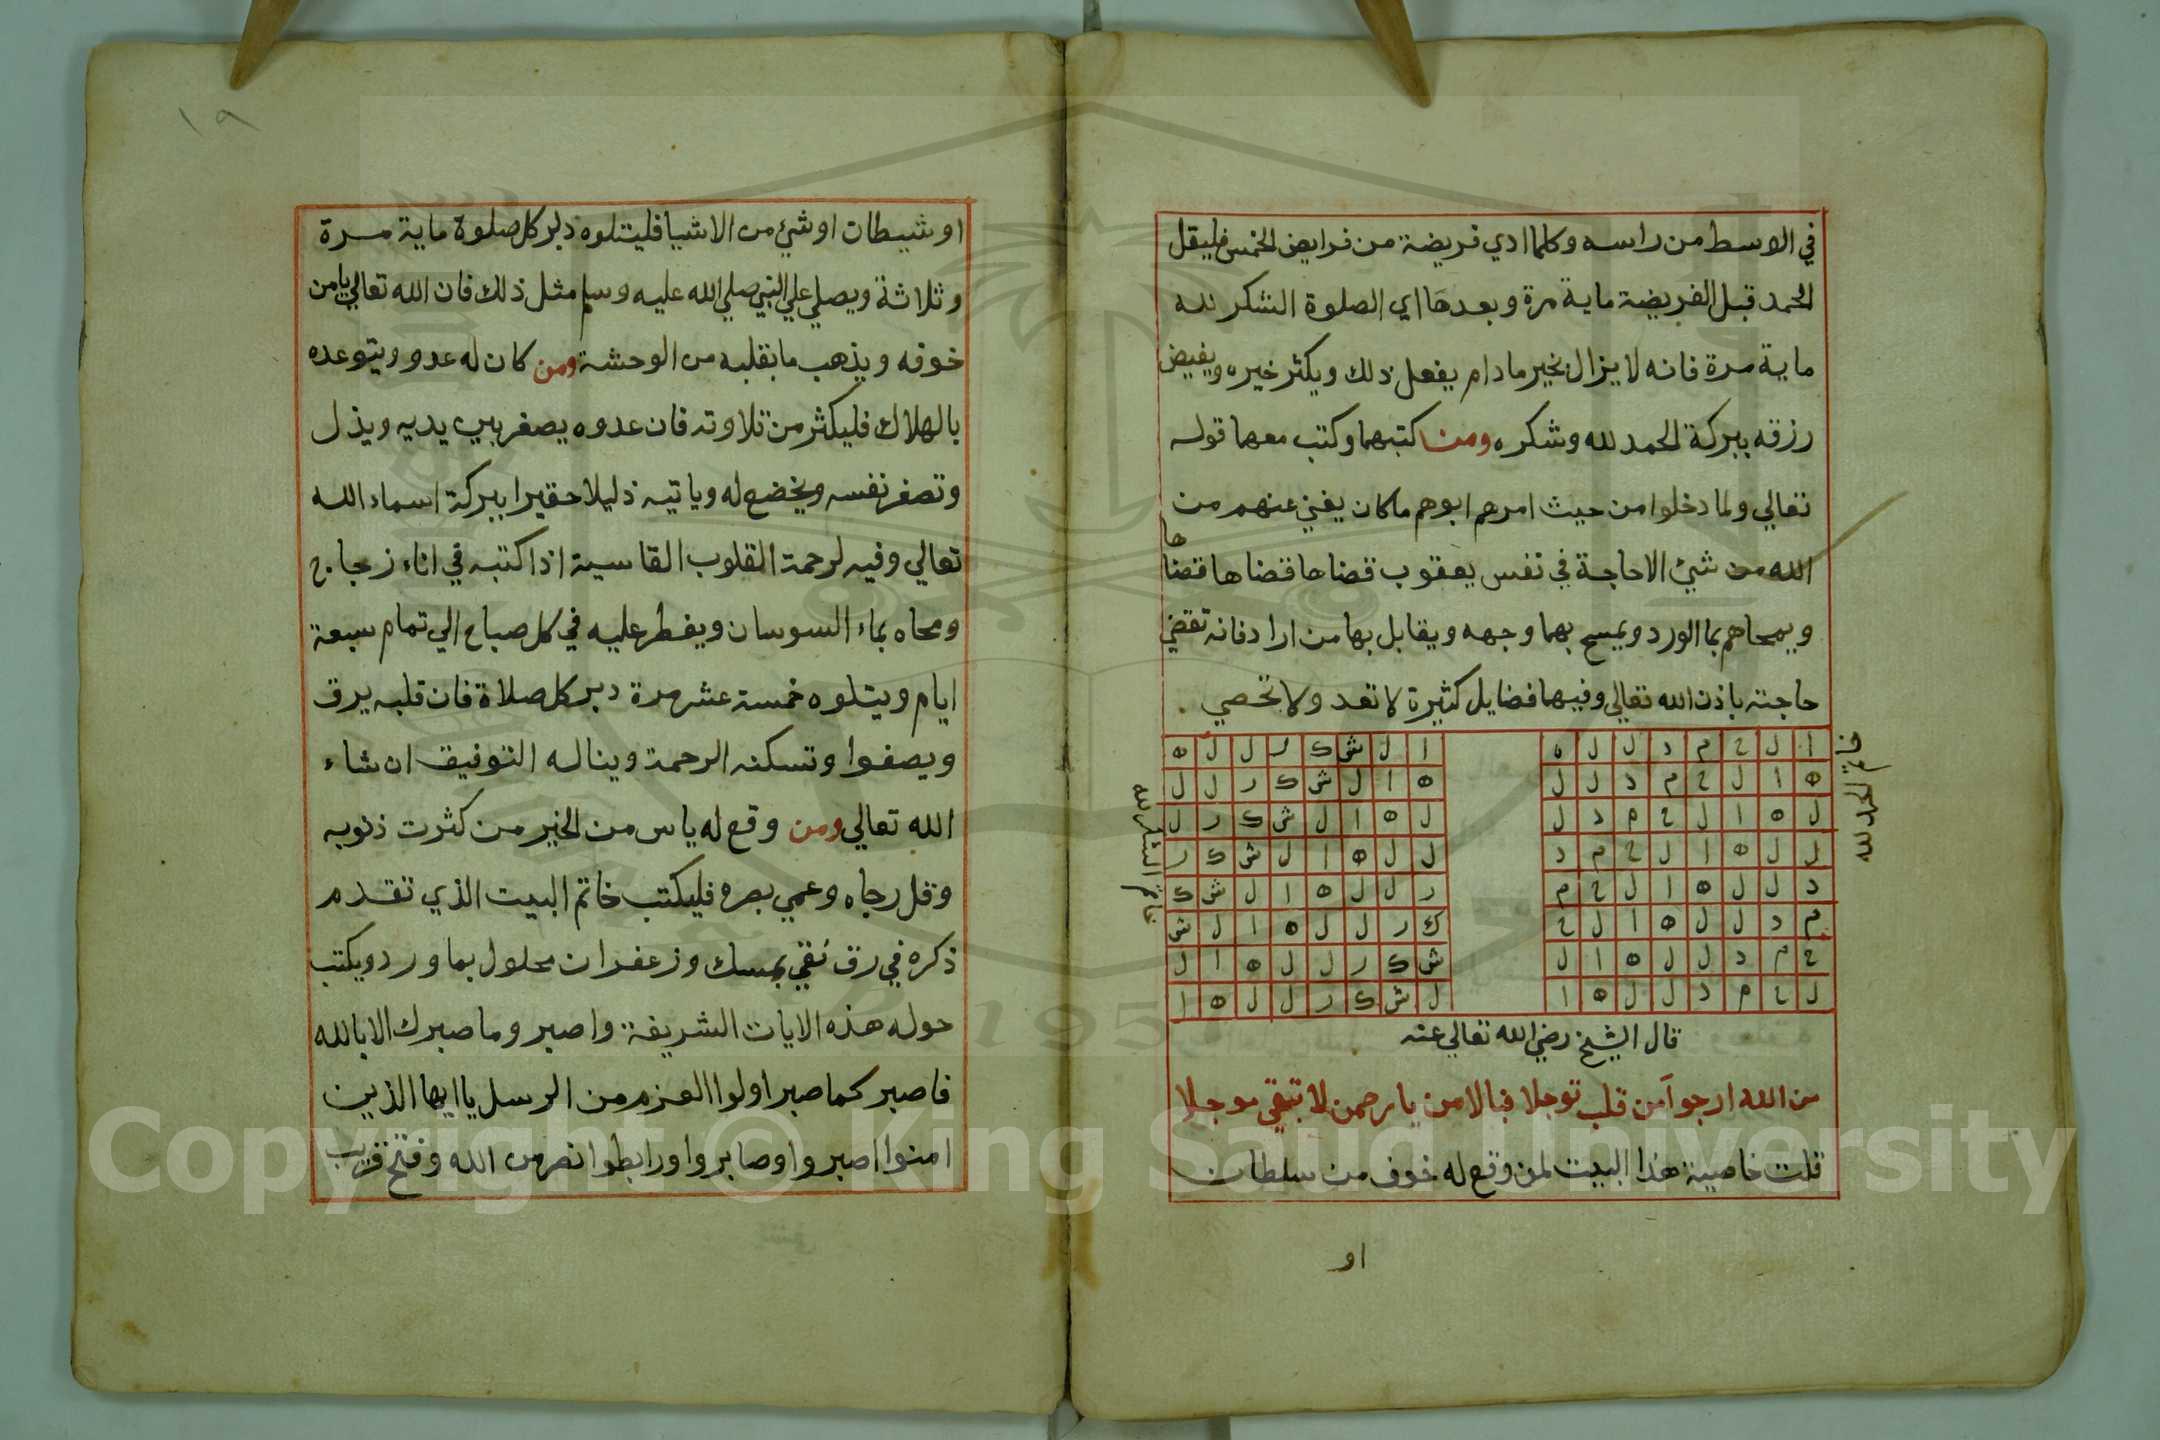 في الاوسط من راسه وكلما ادي فريضة من فرايض الخمس فليقل
الحمد قبل الفريضة ماية مرة وبعدها اي الصلوة الشكر لله
ماية مرة فانه لا يزال بخير مادام يفعل ذلك ويكثر خيره ويفيض
رزقه ببركة الحمد لله وشكره ومن كتبهما وكتب معهما قوله
تعالي ولما دخلوا من حيث امرهم ابوهم ما كان يغني عنهم من
الله من شيئ الا حاجة في نفس يعقوب قضاها قضاها قضاها
ويمحاهم بما الورد ويمسح بهما وجهه ويقابل بها من اراد فانه تقضي
حاجته باذن الله تعالي وفيهما فضايل كثيرة لا تعد ولا تحصي
خاتم الحمد لله
ا ل ح م د ل ل ه
ه ا ل ح م د ل ل
ل ه ا ل ح م د ل
ل ل ه ا ل ح م د
د ل ل ه ا ل ح م
م د ل ل ه ا ل ح
ح م د ل ل ه ا ل
ل ح م د ل ل ه ا
خاتم الشكر لله
ا ل ش ك ر ل ل ه
ه ا ل ش ك ر ل ل
ل ه ا ل ش ك ر ل
ل ل ه ا ل ش ك ر
ر ل ل ه ا ل ش ك
ك ر ل ل ه ا ل ش
ش ك ر ل ل ه ا ل
ل ش ك ر ل ل ه ا
قال الشيخ رضي الله تعالي عنه
من الله ارجوا آمن قلب توجلا فبالامن يا رحمن لا تبقي موجلا
قلت خاصية هذا البيت لمن وقع له خوف من سلطان
او
١٩
او شيطان او شيئ من الاشيا فليتلوه دبر كل صلوة ماية مرة
وثلاثة ويصلي علي النبي صلي الله عليه وسلم مثل ذلك فان الله تعالي يامن
خوفه ويذهب ما بقلبه من الوحشة ومن كان له عدو ويتوعده
بالهلاك فليكثر من تلاوته فان عدوه يصغر بين يديه ويذل
وتصغر نفسه ويخضع له وياتيه ذليلا حقيرا ببركة اسماء الله
تعالي وفيه لرحمة القلوب القاسية اذا كتبه في اناء زجاج
ومحاه بماء السوسان ويفطر عليه في كل صباح الي تمام سبعة
ايام ويتلوه خمسة عشر مرة دبر كل صلاة فان قلبه يرق
ويصفوا وتسكنه الرحمة ويناله التوفيق ان شاء
الله تعالي ومن وقع له ياس من الخير من كثرت ذنوبه
وقل رجاه وعمي بصره فليكتب خاتم البيت الذي تقدم
ذكره في رق نقي بمسك وزعفران محلول بماورد ويكتب
حوله هذه الايات الشريفة واصبر وما صبرك الا بالله
فاصبر كما صبر اولوا العزم من الرسل يا ايها الذين
امنوا اصبروا وصابروا ورابطوا نصر من الله وفتح قريب
Copyright © King Saud University